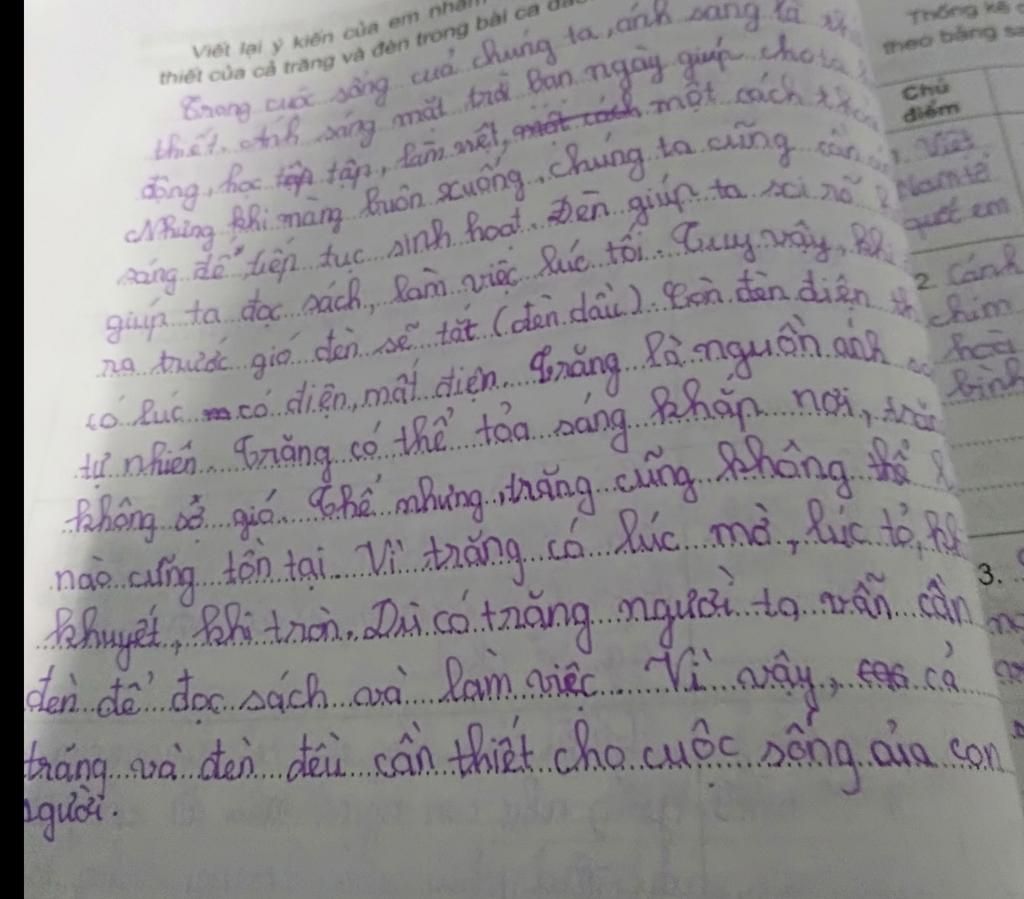 Viết lại ý kiến của em nhằm
thiết của cả trăng và đèn trong bài ca dao
Trong cuộc sống cuả chúng ta, ánh sáng là
thiết. Ánh sáng mặt trời Ban ngày giúp cho ta
động, học tập, làm việt, một cách
Nhưng khi màng buôn xuống, chúng ta cũng cần
sáng để tiếp tục sinh hoạt. Đèn giúp ta soi rõ
giúp ta đọc sách, làm việc lúc tối. Tuy vậy,
ra trước gió đèn sẽ tắt (đèn dầu). Còn đèn điện th
có lúc có điện, mất điện. Trăng là nguồn ánh
tự nhiên. Trăng có thể tỏa sáng khắp nơi,
không sở gió. Thế nhưng, trăng cũng không thể
nào cũng tồn tại. Vì trăng có lúc mờ, lúc tỏ,
khuyết, khi tròn. Dù có trăng người ta vẫn cần
đèn để đọc sách và làm việc. Vì vậy, cả
trăng và đèn đều cần thiết cho cuộc sống của con
người.
Thống kê
theo bảng sa
Chủ
điểm
1. Việt
Nam tổ
quốc em
2. Cánh
chim
hoà
bình
3.